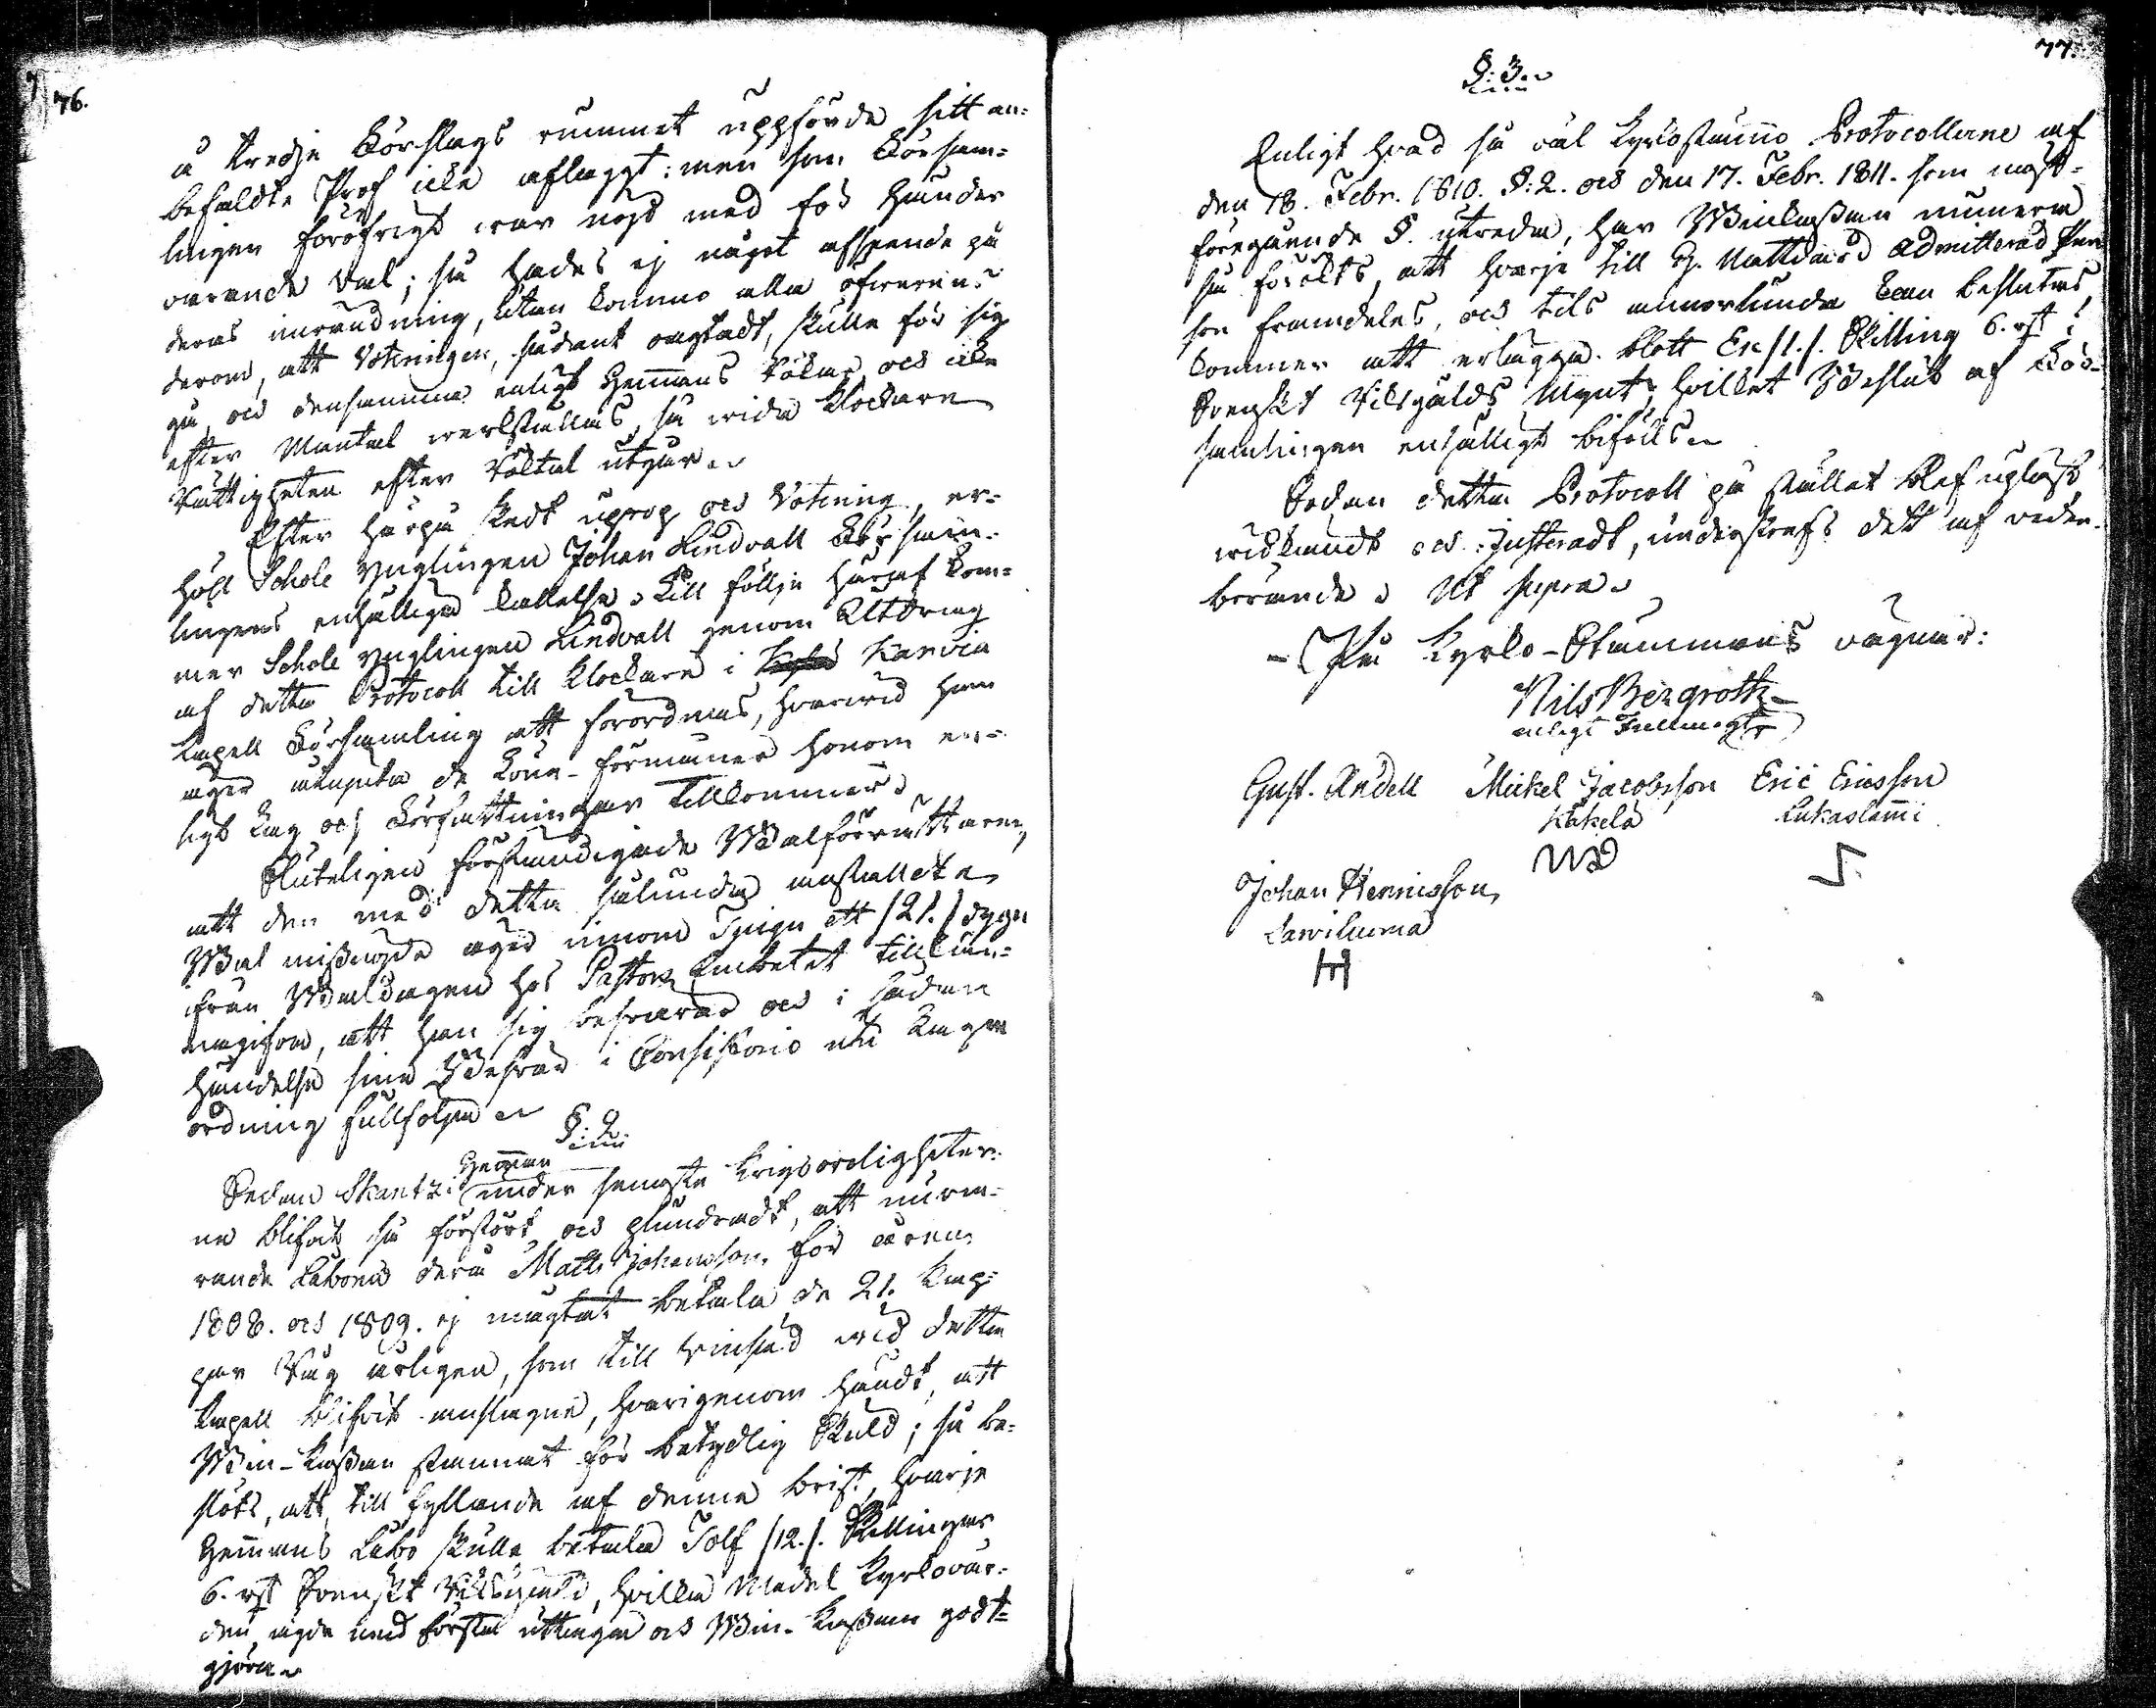 76.
å tredje Förslags rummet uppförde sitt an-
befaldte Prof icke aflaggt: men som Försam-
lingen föröfrigt war nögd med för hander
warande Val; så hades ej något afseende på
deras inwändning, utan kommo alla öfwerens
derom, att Voteringen, sådant oagtadt, skulle för sig
gå, och densamma enligt Hemmans Röktal och icke
efter Mantal werkställas, så wida Klockare
Rättigheten efter Röktal utgår.
Efter härpå skedt uprop och Votering, er-
höll Schole Ynglingen Johan Lindvall Försam-
lingens enhälliga kallelse. Till följe häraf kom-
mer Schole Ynglingen Lindvall genom Utdrag
af detta Protocoll till Klockare i Karvia
Kapell Församling att förordnas, hvarvid han
äger åtnjuta de Löne-förmåner honom en-
ligt Lag och Författningar tillkommer.
Sluteligen förständigade Walförrättaren,
att den med detta sålunda anställdta
Wal missnögde äger innom Tjugu ett /21./ dygn
ifrån Waldagen hos Pastors Embetet tillkän-
nagifwa, att han sig beswärar och i sådan
händelse sine Beswär i Consistorio uti laga
ordning fullfölja.
§: 2.
Sedan Skantzi Hemman under senaste Krigsoroligheter-
ne blifwit så förstört och plundradt, att nuwa-
rande Åboen derå Matts Johansson, för åren
1808. och 1809. ej mägtat betala de 21. Kap-
par Råg årligen, som till Vinsäd wid detta
Kapell blifwit anslagne, hvarigenom händt, att
Win-Kassan stannat för betydlig Skuld; så be-
slöts, att, till fyllande af denna brist, hvarje
Hemmans Åbo skulle betala Tolf /12./. Skillingar
6. rst Svenskt Riksgäld, hvilka Medel Kyrkovär-
den ägde med första uttaga och Win-Kassan godt-
gjöra.
77.
§: 3.
Enligt hvad så väl Kyrkostämmo Protocollerne af
den 18. Febr. 1810. §: 2. och den 17. Febr. 1811. som näst-
föregående §. utreda, har Winkassan numera
så förökts, att hvarje till H. Nattvard admitterad Per-
son framdeles, och tils annorlunda kan beslutas,
kommer att erlägga blott En /1./. Skilling 6. rst i
Svenskt Riksgälds Mynt; hvilket Beslut af För-
samlingen enhälligt bifölls.
Sedan detta Protocoll på stället blef upläst,
widkändt och Justeradt, underskrefs det af veder-
börande. Ut supra.
På Kyrko-Stämmans vägnar:
Nils Bergroth
enligt Fullmagt
Gust. Andell Mickel Jacobsson Eric Ericsson
Käkelä Lukaslammi
Johan Hennicsson
Sawiluoma